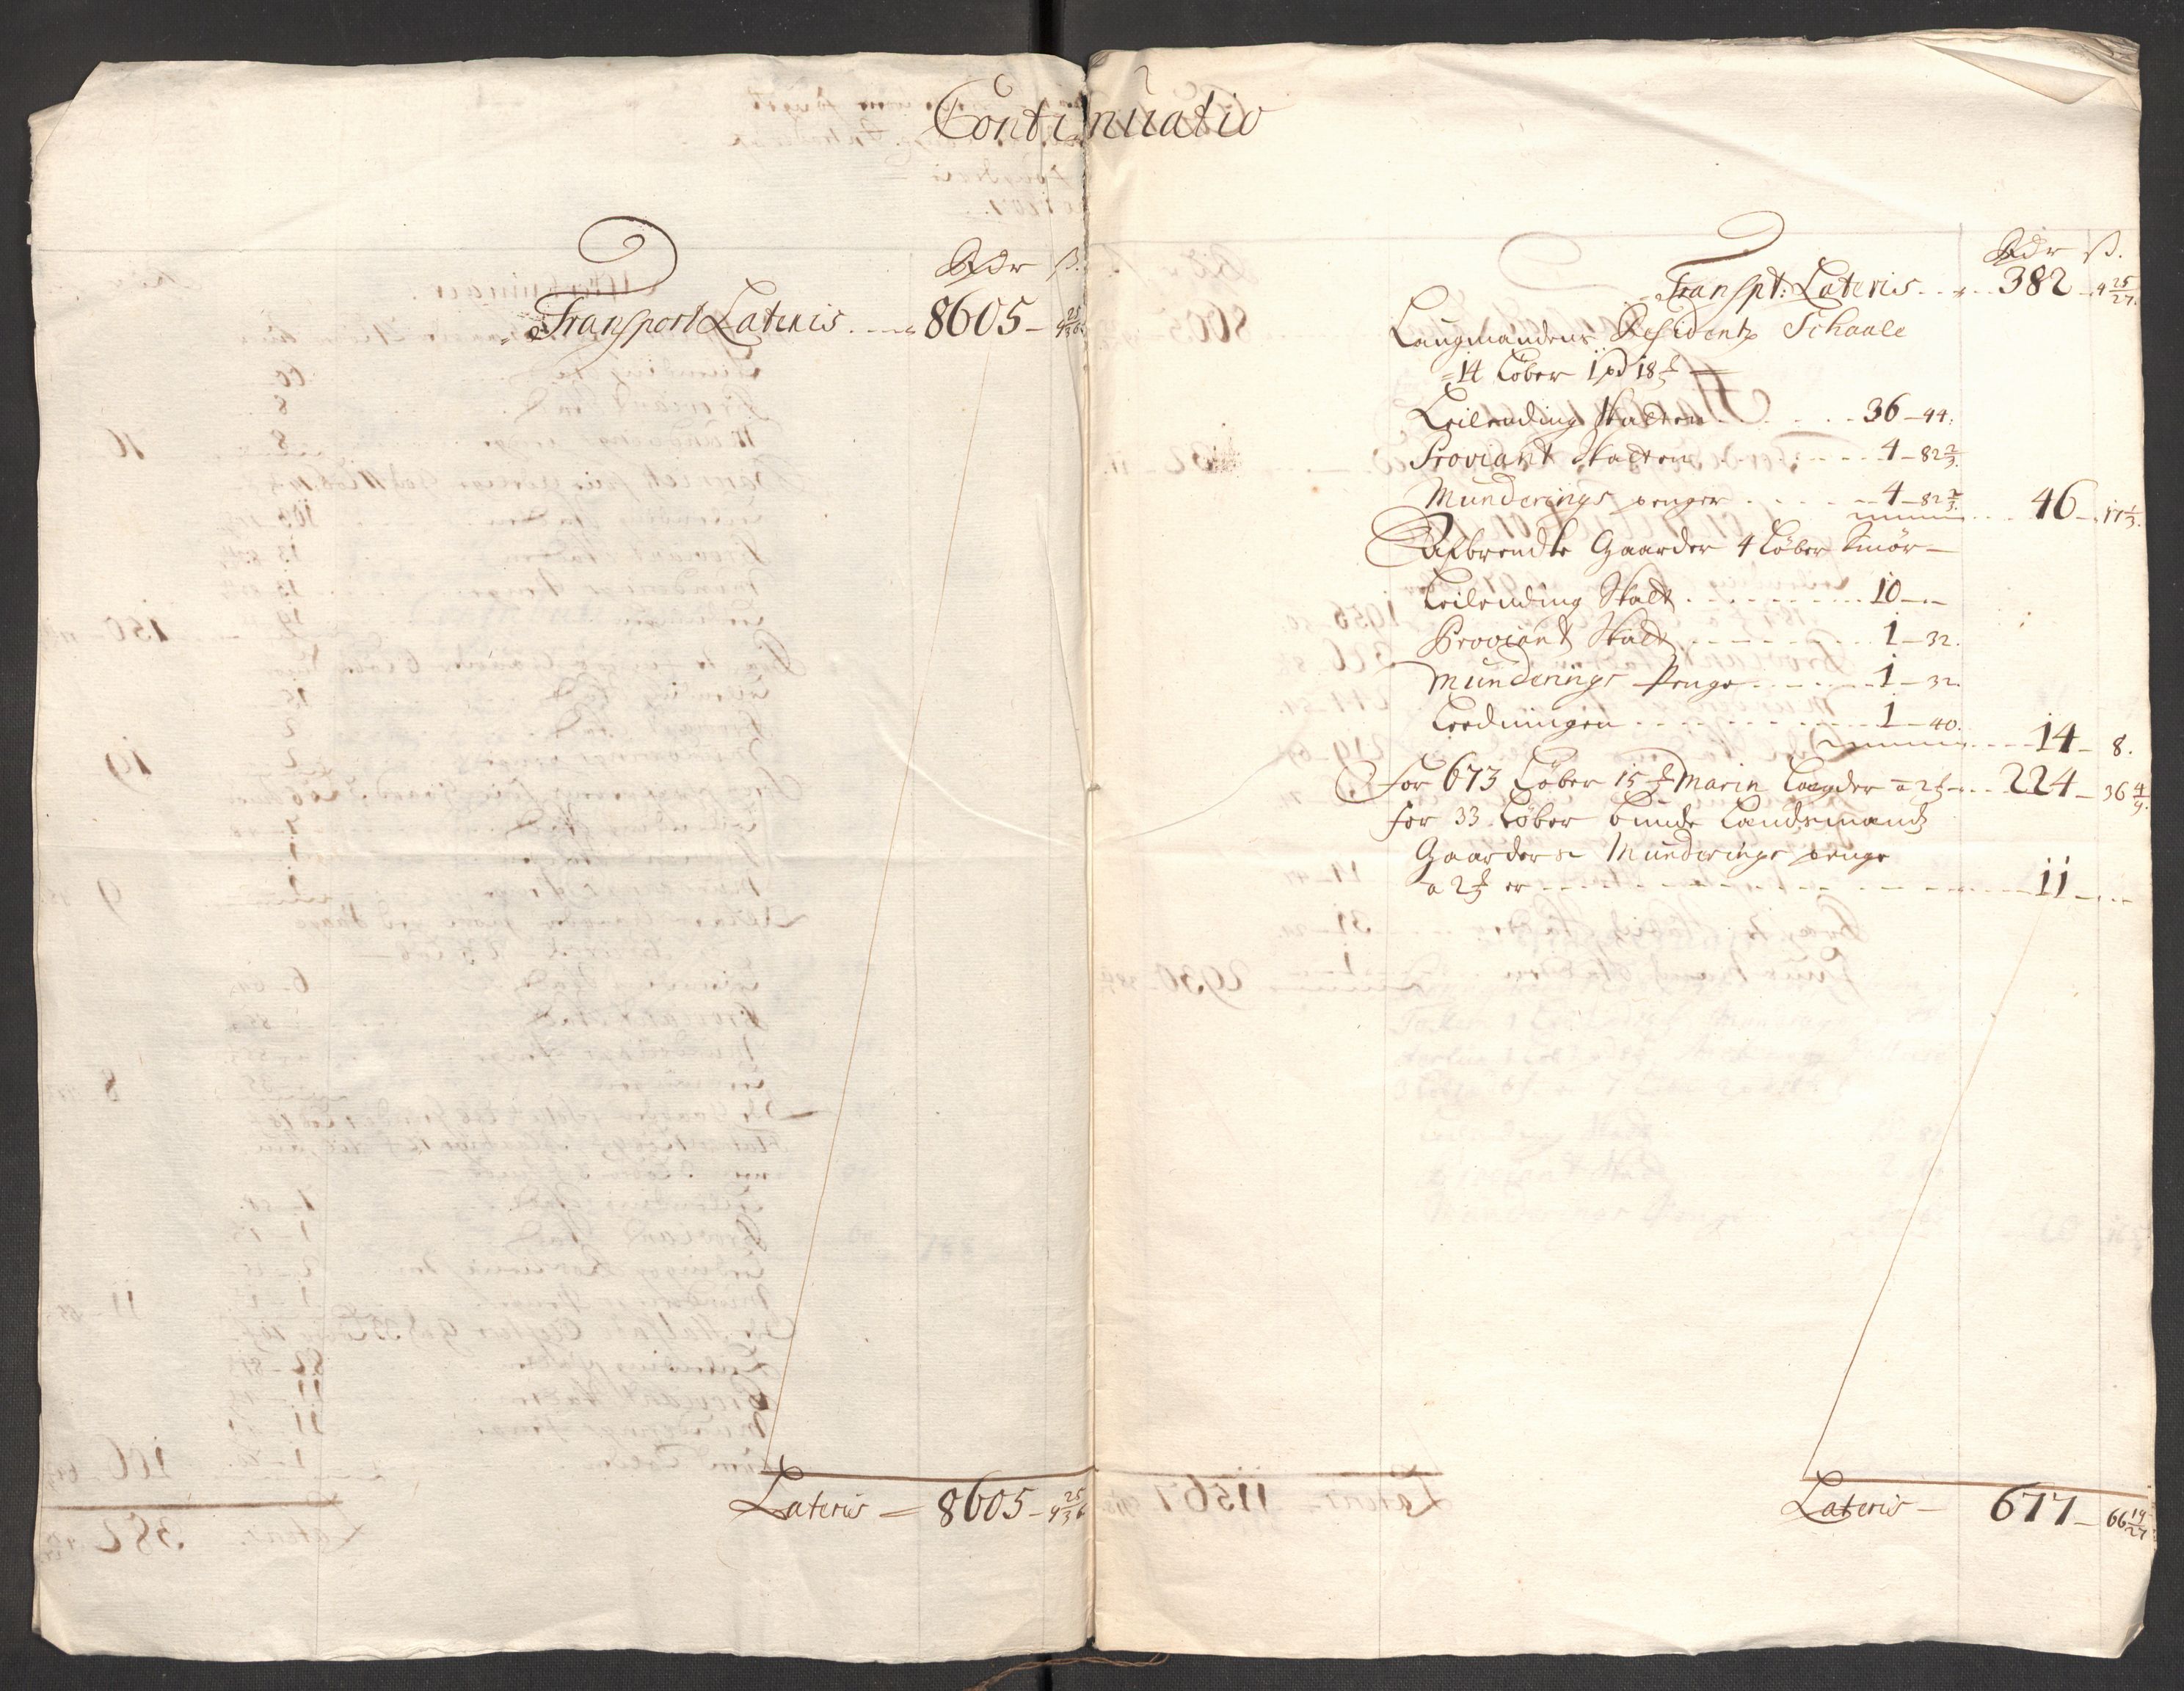 Continuatio
Rdr ß.
Transport Lateris 8605 – 4 25/36
Lateris – 8605 – 4 25/36
Rdr ß.
Transpt: Lateris 382 – 4 25/27
Laugmandens Residentz Schaale
14 Løber 1 pd 18
Leilending Skatten 36 – 44.
Proviant Skatten 4 – 82 2/3.
Munderings penger 4 – 82 2/3. 46 – 17 1/3.
Afbrendte Gaarder 4 Løber Smør –
Leilending Skatt 10 – –
Proviant Skatt 1 – 32.
Munderings Penge 1 – 32.
Leedningen 1 – 40. 14 – 8.
For 673 Løber 15 Marin Lægder a 2 224 – 36 4/9.
for 33 Løber Landsmands
Gaarder Munderings penge
a 2 er 11 – –
Lateris – 677 – 66 19/27